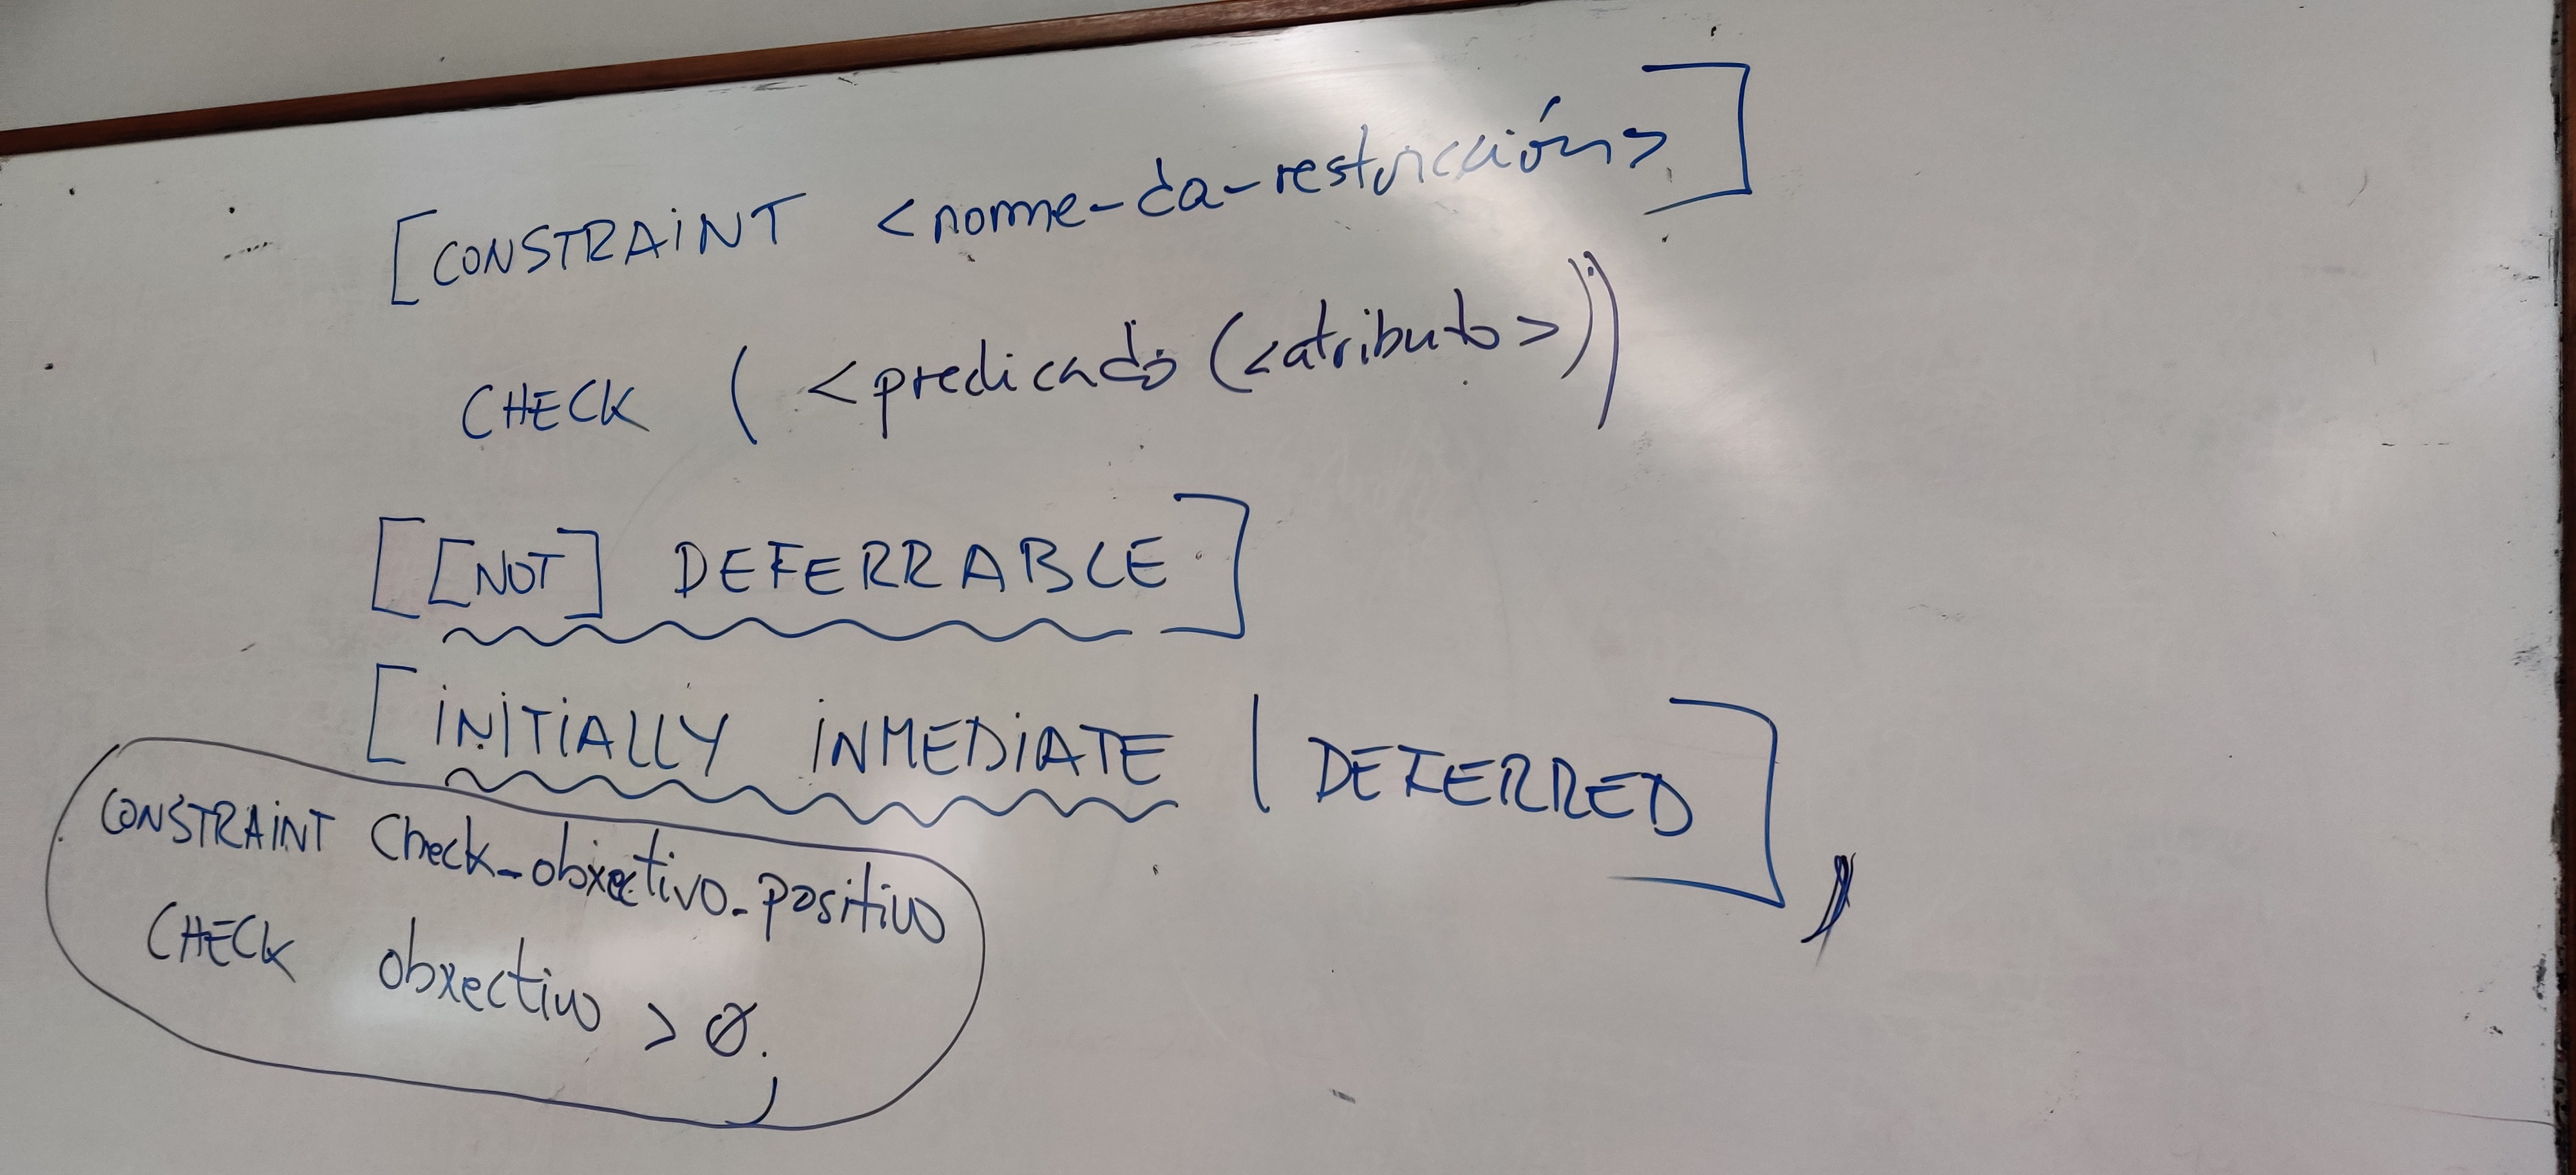 [CONSTRAINT <nome-da-restricción>]
CHECK ( <predicado (<atributo>))
[[NOT] DEFERRABLE]
[INITIALLY INMEDIATE | DEFERRED],
CONSTRAINT Check_obxectivo_positivo
CHECK obxectivo > 0;